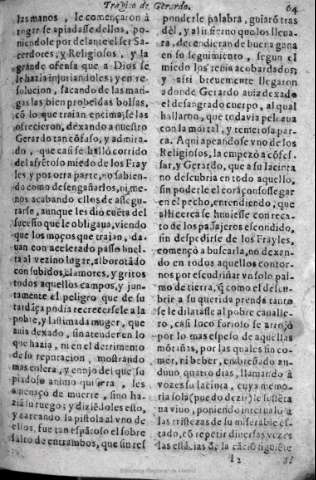 Tragico de Gerardo. 64
las manos, le començaron à
rogar se apiadasse dellos, po-
niendole por delante el ser Sa-
cerdotes, y Religiosos, y la
grande ofensa que a Dios se
le hazia injuriandoles; y en re-
solucion, sacando de las man-
gas las bien probeidas bolsas,
cõ lo que traian encima, se las
ofrecieron, dexando a nuestro
Gerardo tan cõfuso, y admira-
do, que casi se hallò corrido
del afrẽtoso miedo de los Fray
les y por otra parte, no sabien-
do como desengañarlos, ni me-
nos acabando ellos de assegu-
rarse, aunque les diò cuẽta del
sucesso que le obligaua, viendo
que los moços que traian, da-
uan con acelerado passo buel-
ta al vezino lugar, alborotãdo
con subidos clamores, y gritos
todos aquellos campos, y jun-
tamente el peligro que de su
tardãça podia recrecersele a la
pobre, y lastimada muger, que
auia dexado, sin atender en lo
que hazia, ni en el detrimento
de su reputacion, mostrando
mas colera, y enojo del que su
piadoso animo quisiera, les
amenaço de muerte, sino ha-
zia su ruego; y diziẽdoles esto,
y cerrando la pistola al vno de
ellos, fue tan espãtoso el sobre
salto de entrambos, que sin res
ponderle palabra, guiarõ tras
dèl, y al infierno que los lleua-
ra, decendieran de buena gana
en su seguimiento, segun el
miedo los tenia acobardados;
y assi brevemente llegaron
a donde Gerardo auia dexado
el desangrado cuerpo, al qual
hallaron, que todavia peleaua
con la mortal, y temerosa par-
ca. Aqui apeandose vno de los
Religiosos, la empezò a cõfes-
sar, y Gerardo, que a su Iacinta
no descubria en todo aquello,
sin poderle el coraçon sossegar
en el pecho, entendiendo, que
alli cerca se huuiesse con reca-
to de los passajeros escondido,
sin despedirse de los Frayles,
començò a buscarla, no dexan-
do en todos aquellos contor-
nos por escudriñar vn solo pal-
mo de tierra, q̃ como el descu-
brir a su querida prenda tanto
se le dilatasse al pobre caualle-
ro, casi loco furioso se arrojò
por lo mas espeso de aquellas
mõtañas, por las quales sin co-
mer, ni beber, embreñado an-
duuo, quatro dias, llamando à
vozes su Iacinta, cuya memo-
ria sola (puedo dezir) le sustẽta
ua viuo, poniendo interualo a
las tristezas de su miserable es-
tado, cõ repetir diuersas vezes
las
I 2